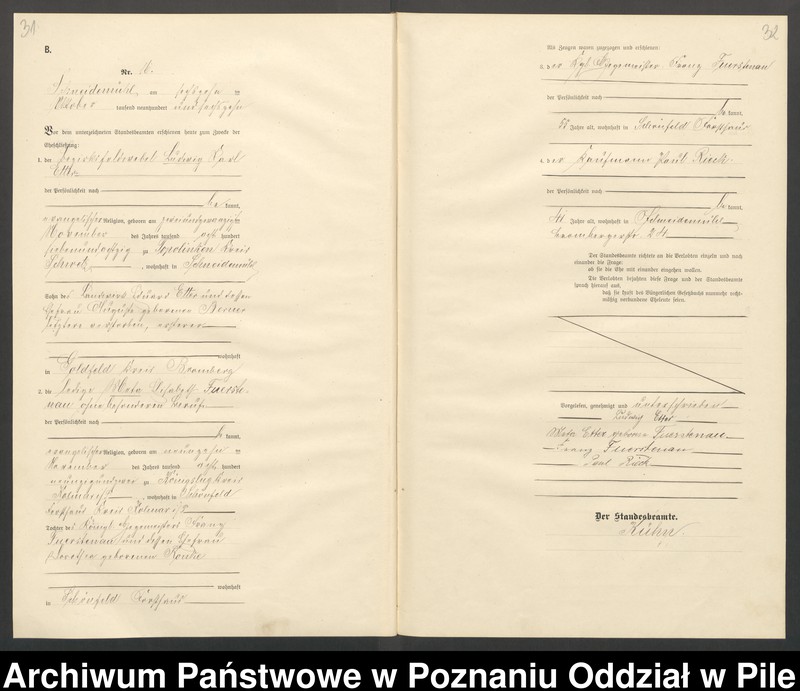 31
B.
Nr.
Schneidemühl, am sechszehn
Oktober tausend neunhundert und sechszehn
Vor dem unterzeichneten Standesbeamten erschienen heute zum Zwecke der
Eheschließung:
1. der Bezirksfeldwebel Ludwig Karl
Etter
der Persönlichkeit nach
be kannt,
evangelischer Religion, geboren am zweiundzwanzig
November des Jahres tausend acht hundert
siebenundachtzig zu Kreis
Schwetz, wohnhaft in Schneidemühl
Sohn des Landwirts Etter und dessen
Ehefrau Auguste geborenen
letztere verstorben, ersterer
wohnhaft
in Goldfeld Kreis Bromberg
2. die ledige Meta Elisabeth Fuerste-
nau ohne besonderen Beruf
der Persönlichkeit nach
be kannt,
evangelischer Religion, geboren am neunzehn
November des Jahres tausend acht hundert
neunzig und zu Kreis
Kolmar, wohnhaft in Schönfeld
Forsthaus Kreis Kolmar
Tochter des Königl. Hegemeisters Franz
Fuerstenau und dessen Ehefrau
geborenen
wohnhaft
in Schönfeld Forsthaus
32
Als Zeugen waren zugezogen und erschienen:
3. der Kgl. Hegemeister Franz Fuerstenau
der Persönlichkeit nach
be kannt,
57 Jahre alt, wohnhaft in Schönfeld Forsthaus
4. der Kaufmann Paul Rieck
der Persönlichkeit nach
be kannt,
41 Jahre alt, wohnhaft in Schneidemühl
Brombergerstr. 24
Der Standesbeamte richtete an die Verlobten einzeln und nach
einander die Frage:
ob sie die Ehe mit einander eingehen wollen.
Die Verlobten bejahten diese Frage und der Standesbeamte
sprach hierauf aus,
daß sie kraft des Bürgerlichen Gesetzbuchs nunmehr recht-
mäßig verbundene Eheleute seien.
Vorgelesen, genehmigt und unterschrieben
Ludwig Etter
Meta Etter geborene Fuerstenau
Franz Fuerstenau
Paul Rieck
Der Standesbeamte.
Kühn
Archiwum Państwowe w Poznaniu Oddział w Pile